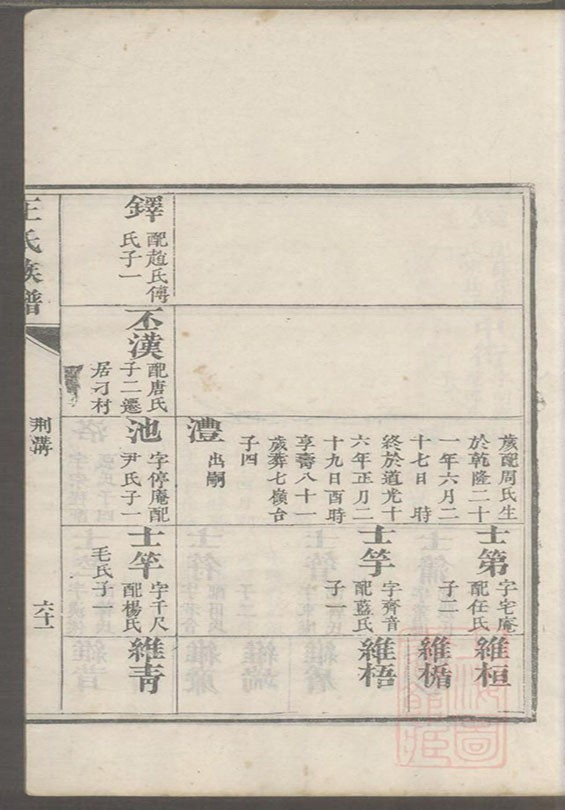 歲配周氏生
於乾隆二十
一年六月二
十七日 時
終於道光十
六年正月二
十九日酉時
享壽八十一
歲葬七㠉台
子四
澧
出嗣
士第
字宅庵
配任氏
子二
士竽
字齊音
配藍氏
子一
維桓
維楯
維梧
鐸
配趙氏傅
氏子一
丕漢
配唐氏
子二遷
居刁村
池
字停庵配
尹氏子一
士竿
字千尺
配楊氏
毛氏子一
維青
王氏族譜
荆溝
六十一